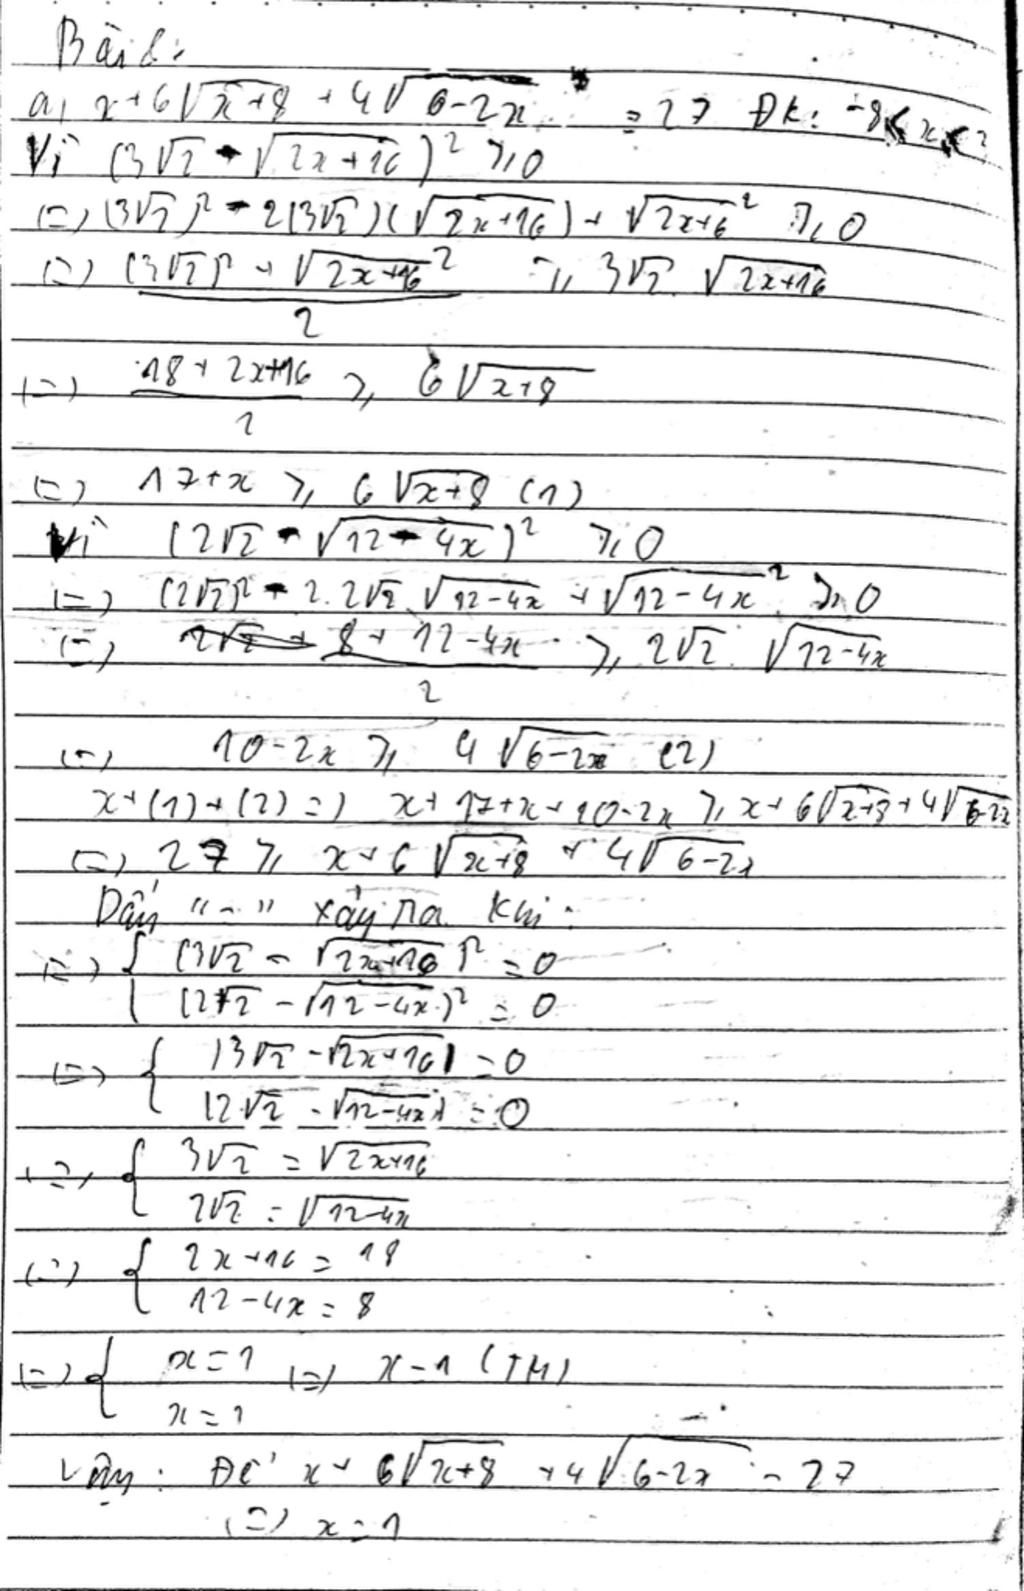 Bài 8:
a, x+6√(x+8) + 4√(6-2x) = 27 ĐK: -8 ≤ x ≤
Vì (3√2 - √(2x+16))² ≥ 0
(=) (3√2)² - 2(3√2)(√(2x+16)) + √(2x+6)² ≥ 0
(=) ((3√2)² + √(2x+16)²)/2 ≥ 3√2 . √(2x+16)
(=) (18 + 2x+16)/2 ≥ 6√(x+8)
(=) 17+x ≥ 6√(x+8) (1)
Vì (2√2 - √(12-4x))² ≥ 0
(=) (2√2)² - 2.2√2 √(12-4x) + √(12-4x)² ≥ 0
(=) (8 + 12-4x)/2 ≥ 2√2 . √(12-4x)
(=) 10-2x ≥ 4√(6-2x) (2)
x+(1)+(2) =) x+17+x+10-2x ≥ x+6√(x+8)+4√(6-2x)
(=) 27 ≥ x+6√(x+8) + 4√(6-2x)
Dấu "=" xảy ra khi:
(=) { (3√2 - √(2x+16))² = 0
{ (2√2 - √(12-4x))² = 0
(=) { |3√2 - √(2x+16)| = 0
{ |2√2 - √(12-4x)| = 0
(=) { 3√2 = √(2x+16)
{ 2√2 = √(12-4x)
(=) { 2x+16 = 18
{ 12-4x = 8
(=) { x=1 (=) x=1 (TM)
{ x=1
Vậy: Để x+6√(x+8) +4√(6-2x) = 27
(=) x=1